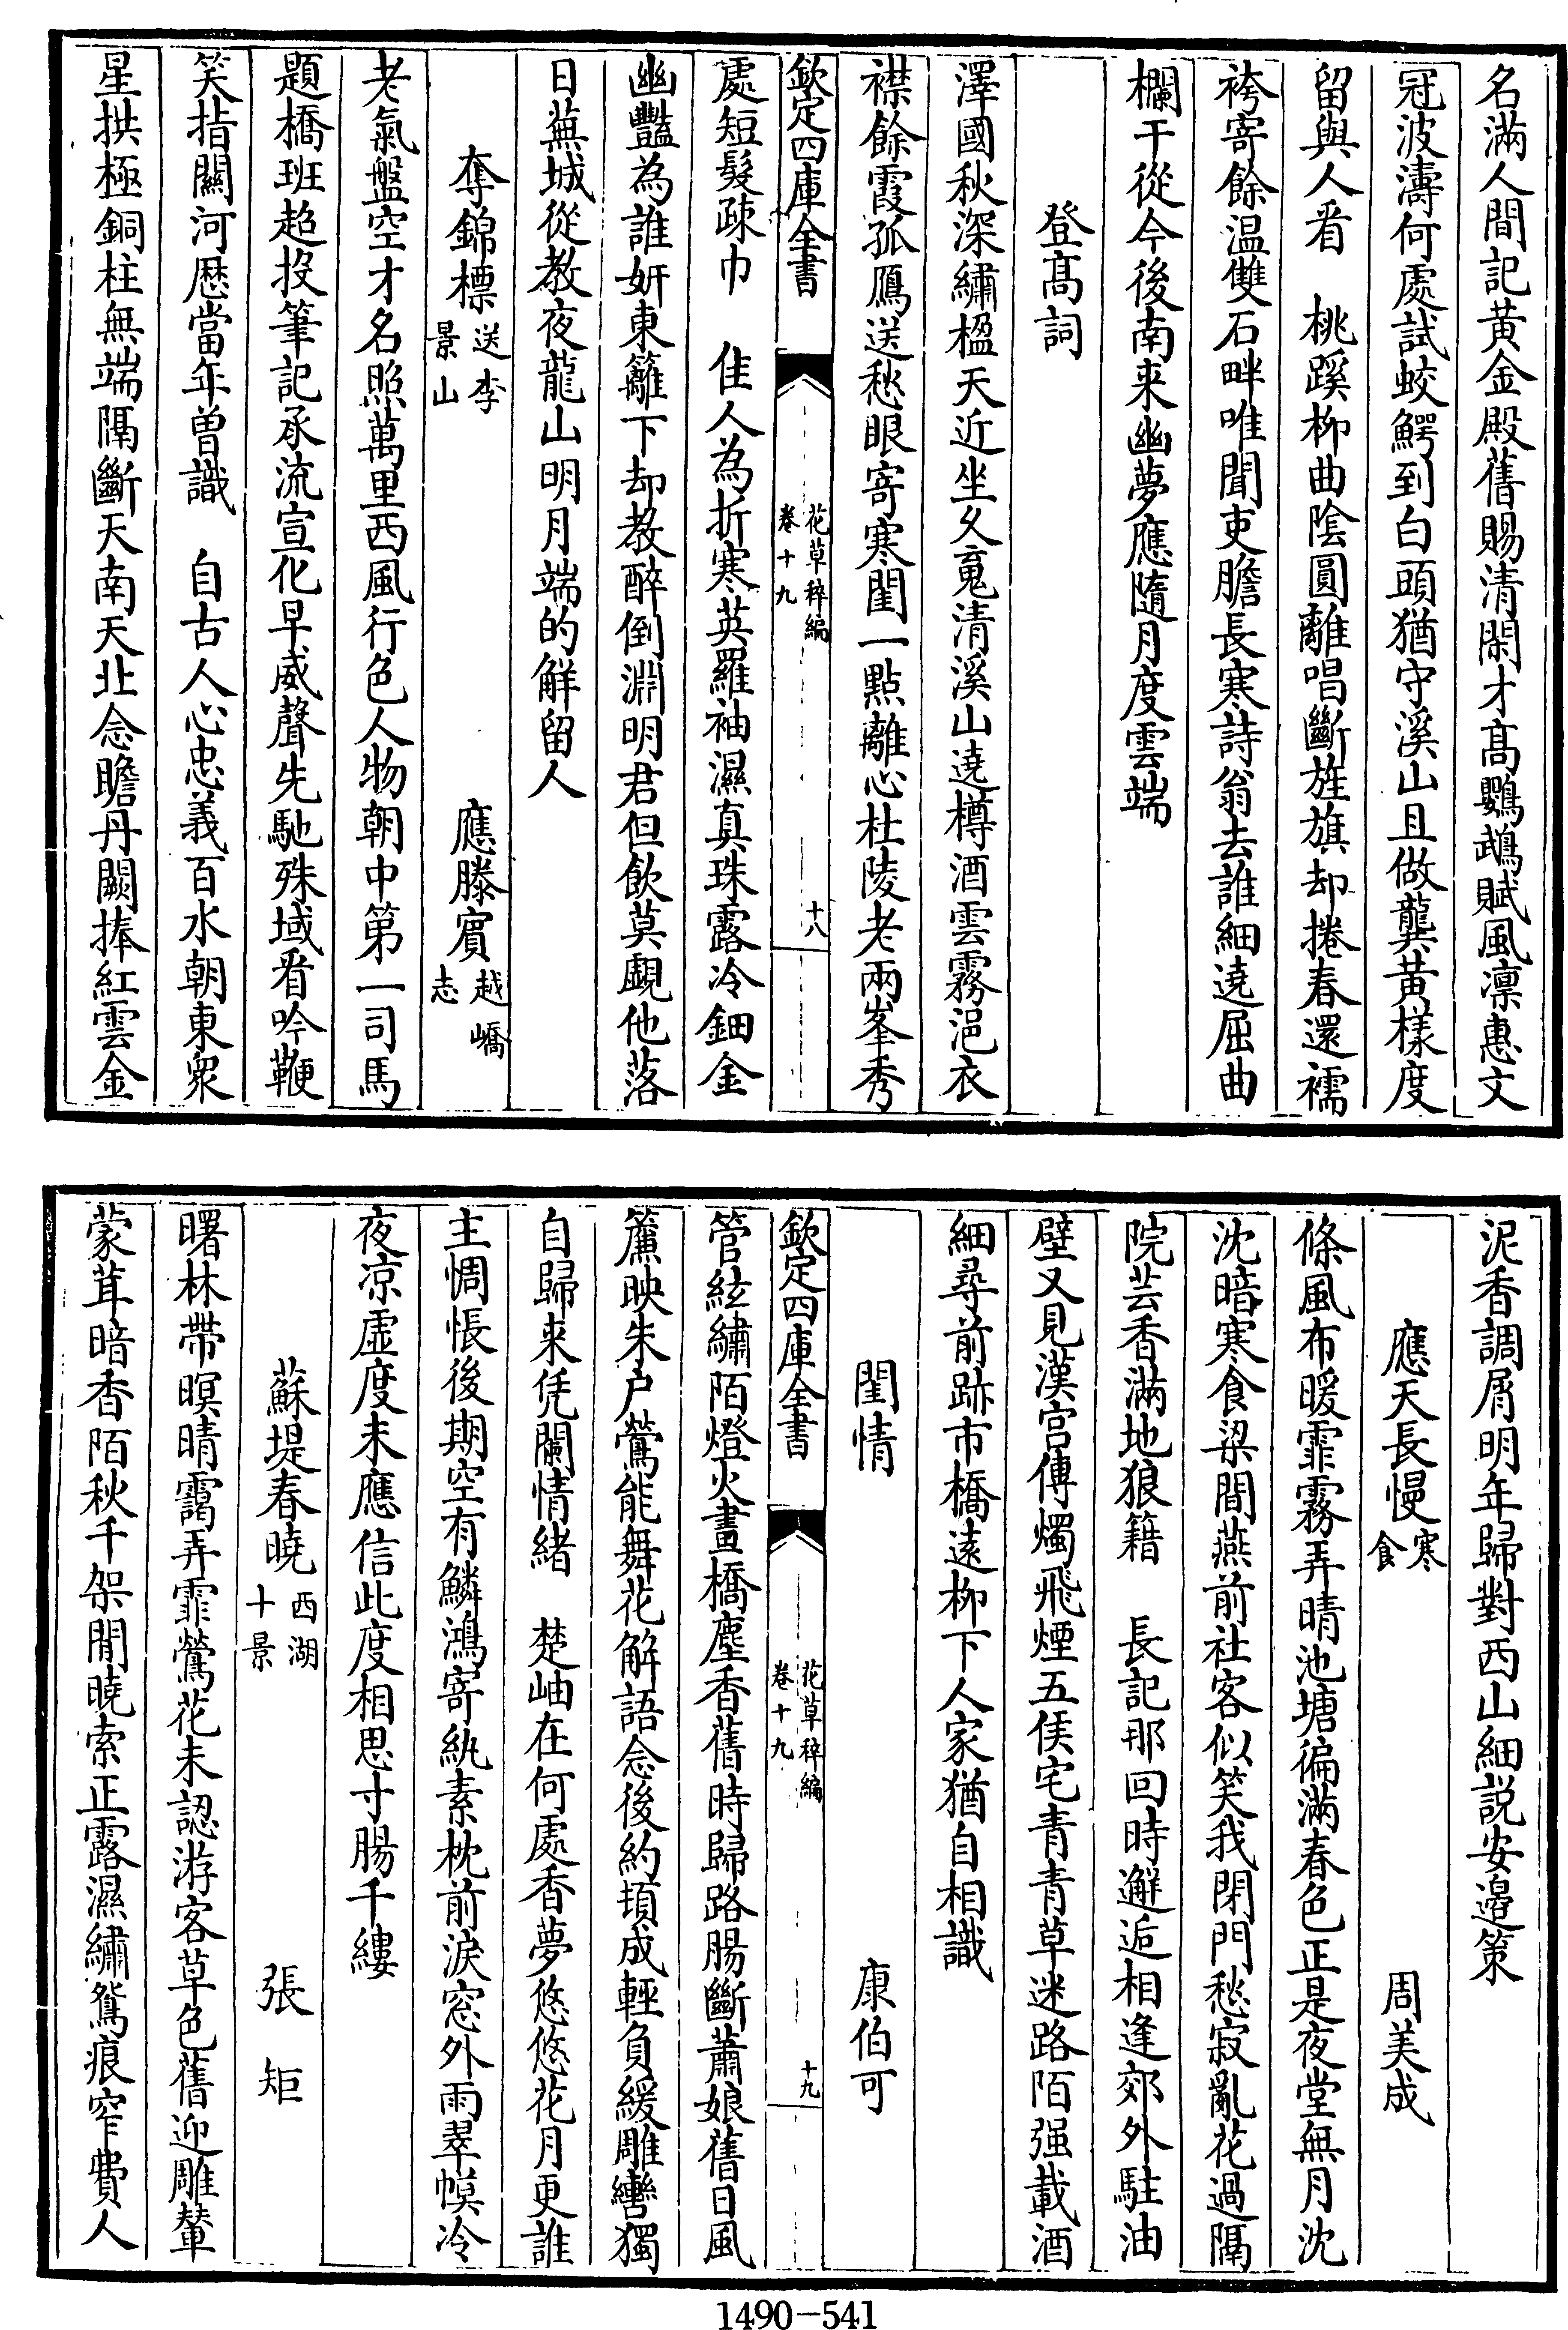 名滿人間記黄金殿舊賜清閑才髙鸚鵡賦風凛惠文
冠波濤何處試蛟鰐到白頭猶守溪山且做龔黄様度
留與人㸔　桃蹊柳曲陰圓離唱斷旌旗却捲春還襦
袴寄餘温雙石畔唯聞吏膽長寒詩翁去誰細遶屈曲
欄干從今後南来幽夢應隨月度雲端
登髙詞
澤國秋深繡楹天近坐乆䰟清溪山遶樽酒雲霧浥衣
襟餘霞孤鴈送愁眼寄寒閨一點離心杜陵老兩峯秀
欽定四庫全書
花草稡編
卷十九
十八
處短髮疎巾　佳人為折寒英羅袖濕真珠露冷鈿金
幽豔為誰妍東籬下却教醉倒淵明君但飲莫覷他落
日蕪城從教夜龍山明月端的解留人
奪錦標送李景山
應滕賔越嶠志
老氣盤空才名照萬里西風行色人物朝中第一司馬
題橋班超投筆記承流宣化早威聲先馳殊域㸔吟鞭
笑指關河歴當年曽識　自古人心忠義百水朝東衆
星拱極銅柱無端隔斷天南天北念瞻丹闕捧紅雲金
泥香調屑明年歸對西山細説安邉策
應天長慢寒食
周美成
條風布暖霏霧弄晴池塘徧滿春色正是夜堂無月沈
沈暗寒食梁間燕前社客似笑我閉門愁寂亂花過隔
院芸香滿地狼籍　長記那回時邂逅相逢郊外駐油
壁又見漢宫傳燭飛煙五侯宅青青草迷路陌强載酒
細尋前跡市橋逺栁下人家猶自相識
閨情
康伯可
欽定四庫全書
花草稡編
卷十九
十九
管絃繡陌燈火畫橋塵香舊時歸路腸斷蕭娘舊日風
簾映朱户鶯能舞花解語念後約頓成輕負緩雕轡獨
自歸来凭闌情緒　楚岫在何處香夢悠悠花月更誰
主惆悵後期空有鱗鴻寄紈素枕前淚窓外雨翠幙冷
夜凉虚度未應信此度相思寸腸千縷
蘇堤春曉西湖十景
張矩
曙林帶暝晴靄弄霏鶯花未認游客草色舊迎雕輦
蒙茸暗香陌秋千架閒曉索正露濕繡鴛痕窄費人
1490－541